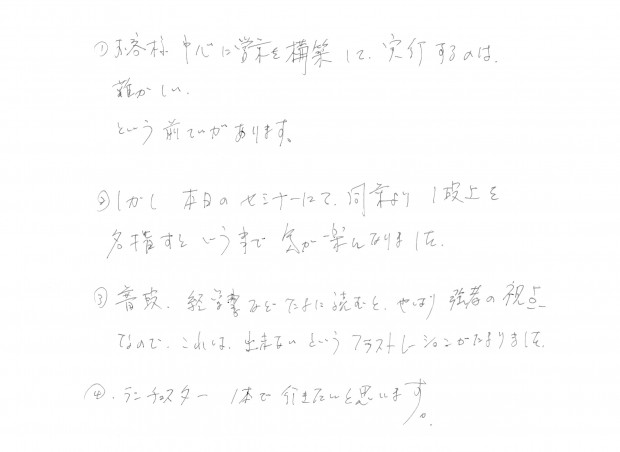 ①お客様中心に営業を構築して、実行するのは、
難かしい、
という前ていがあります。
②しかし 本日のセミナーにて、同業より 1枚上を
目指すと いう事で 気が楽になりました。
③ 音声、経営書などたまに読むと、やはり 強者の視点
なので、これは、出来ないという フラストレーションがたまりました。
④、ランチェスター 1本で 行きたいと思います。